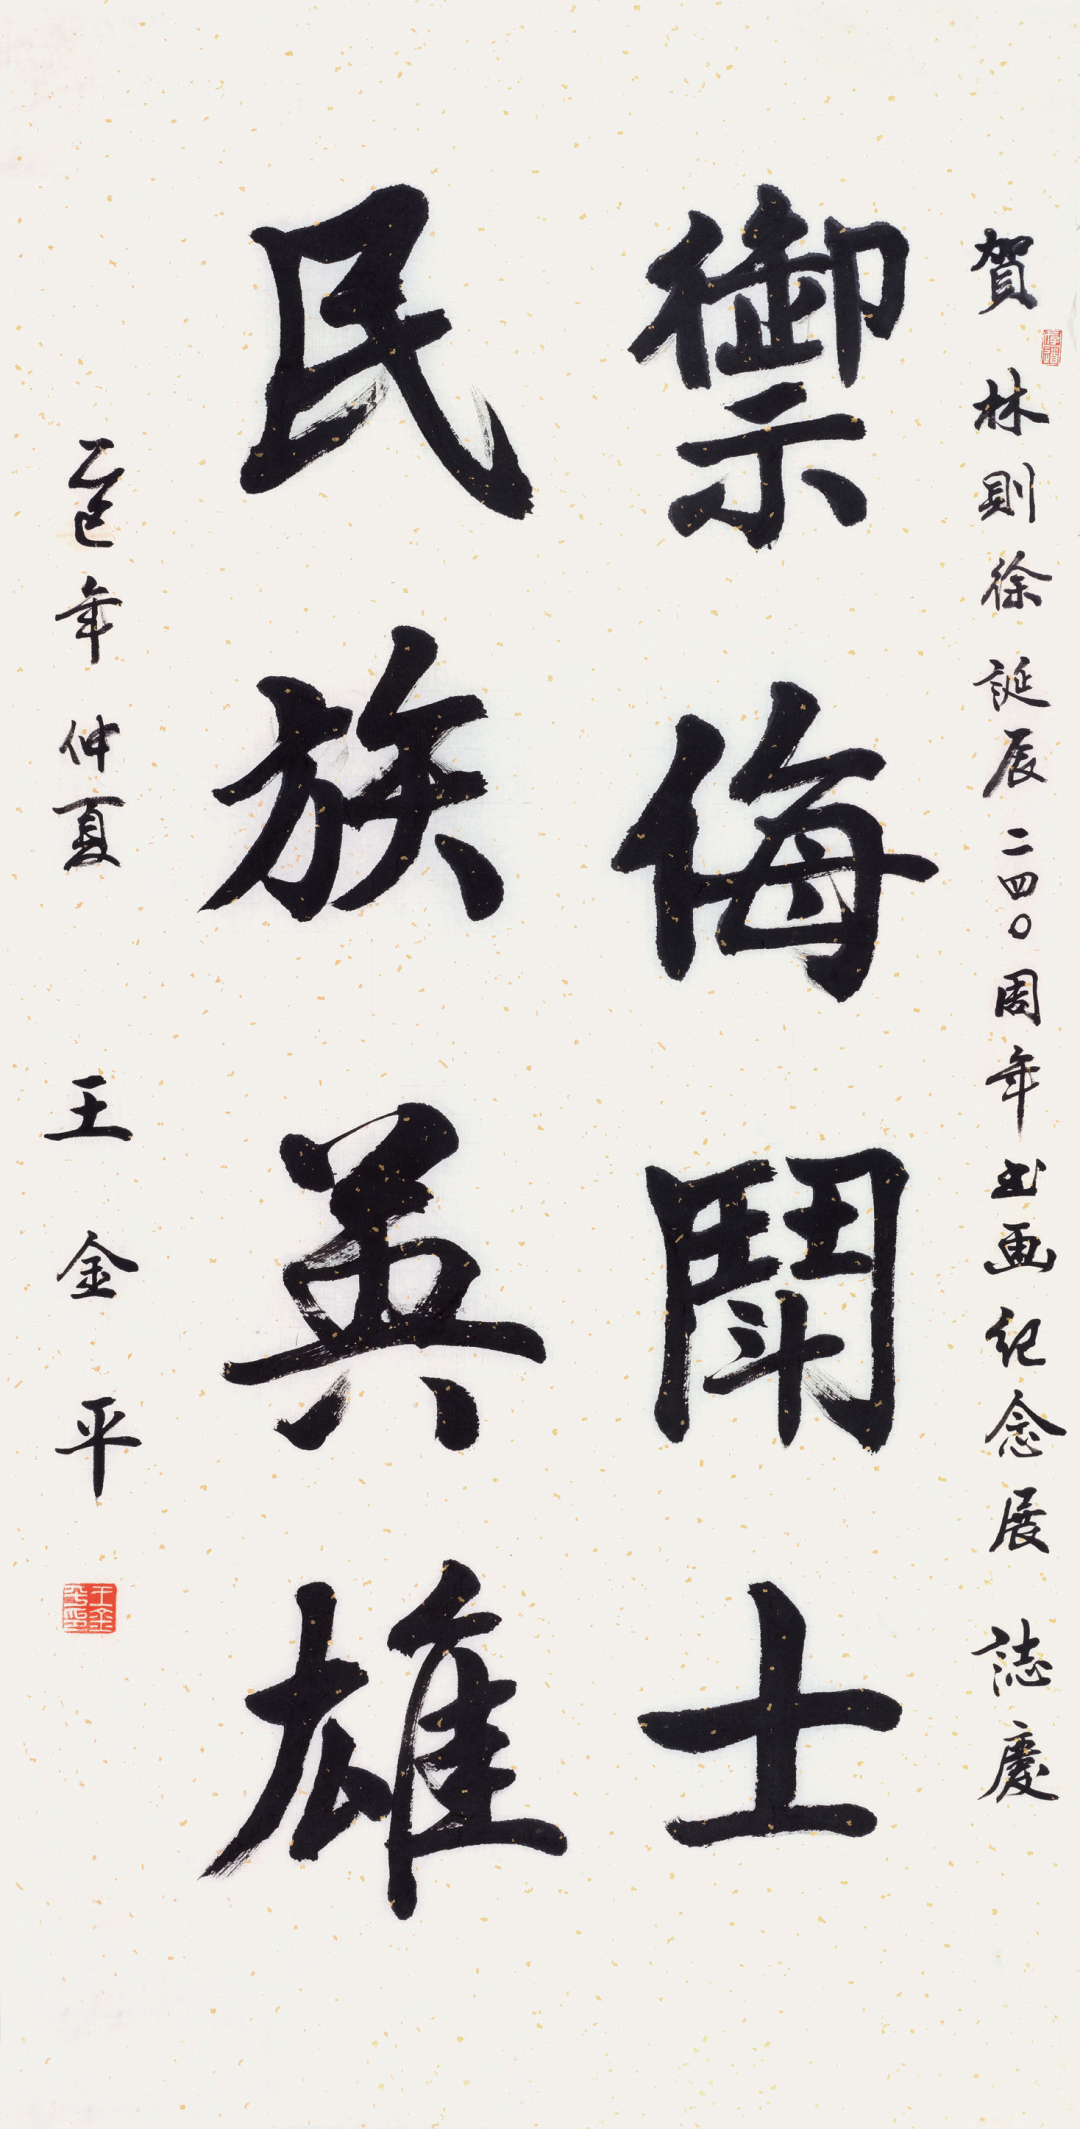 賀林則徐誕辰二四〇周年书画纪念展誌慶
禦侮鬭士
民族英雄
乙巳年仲夏 王金平
王金平印